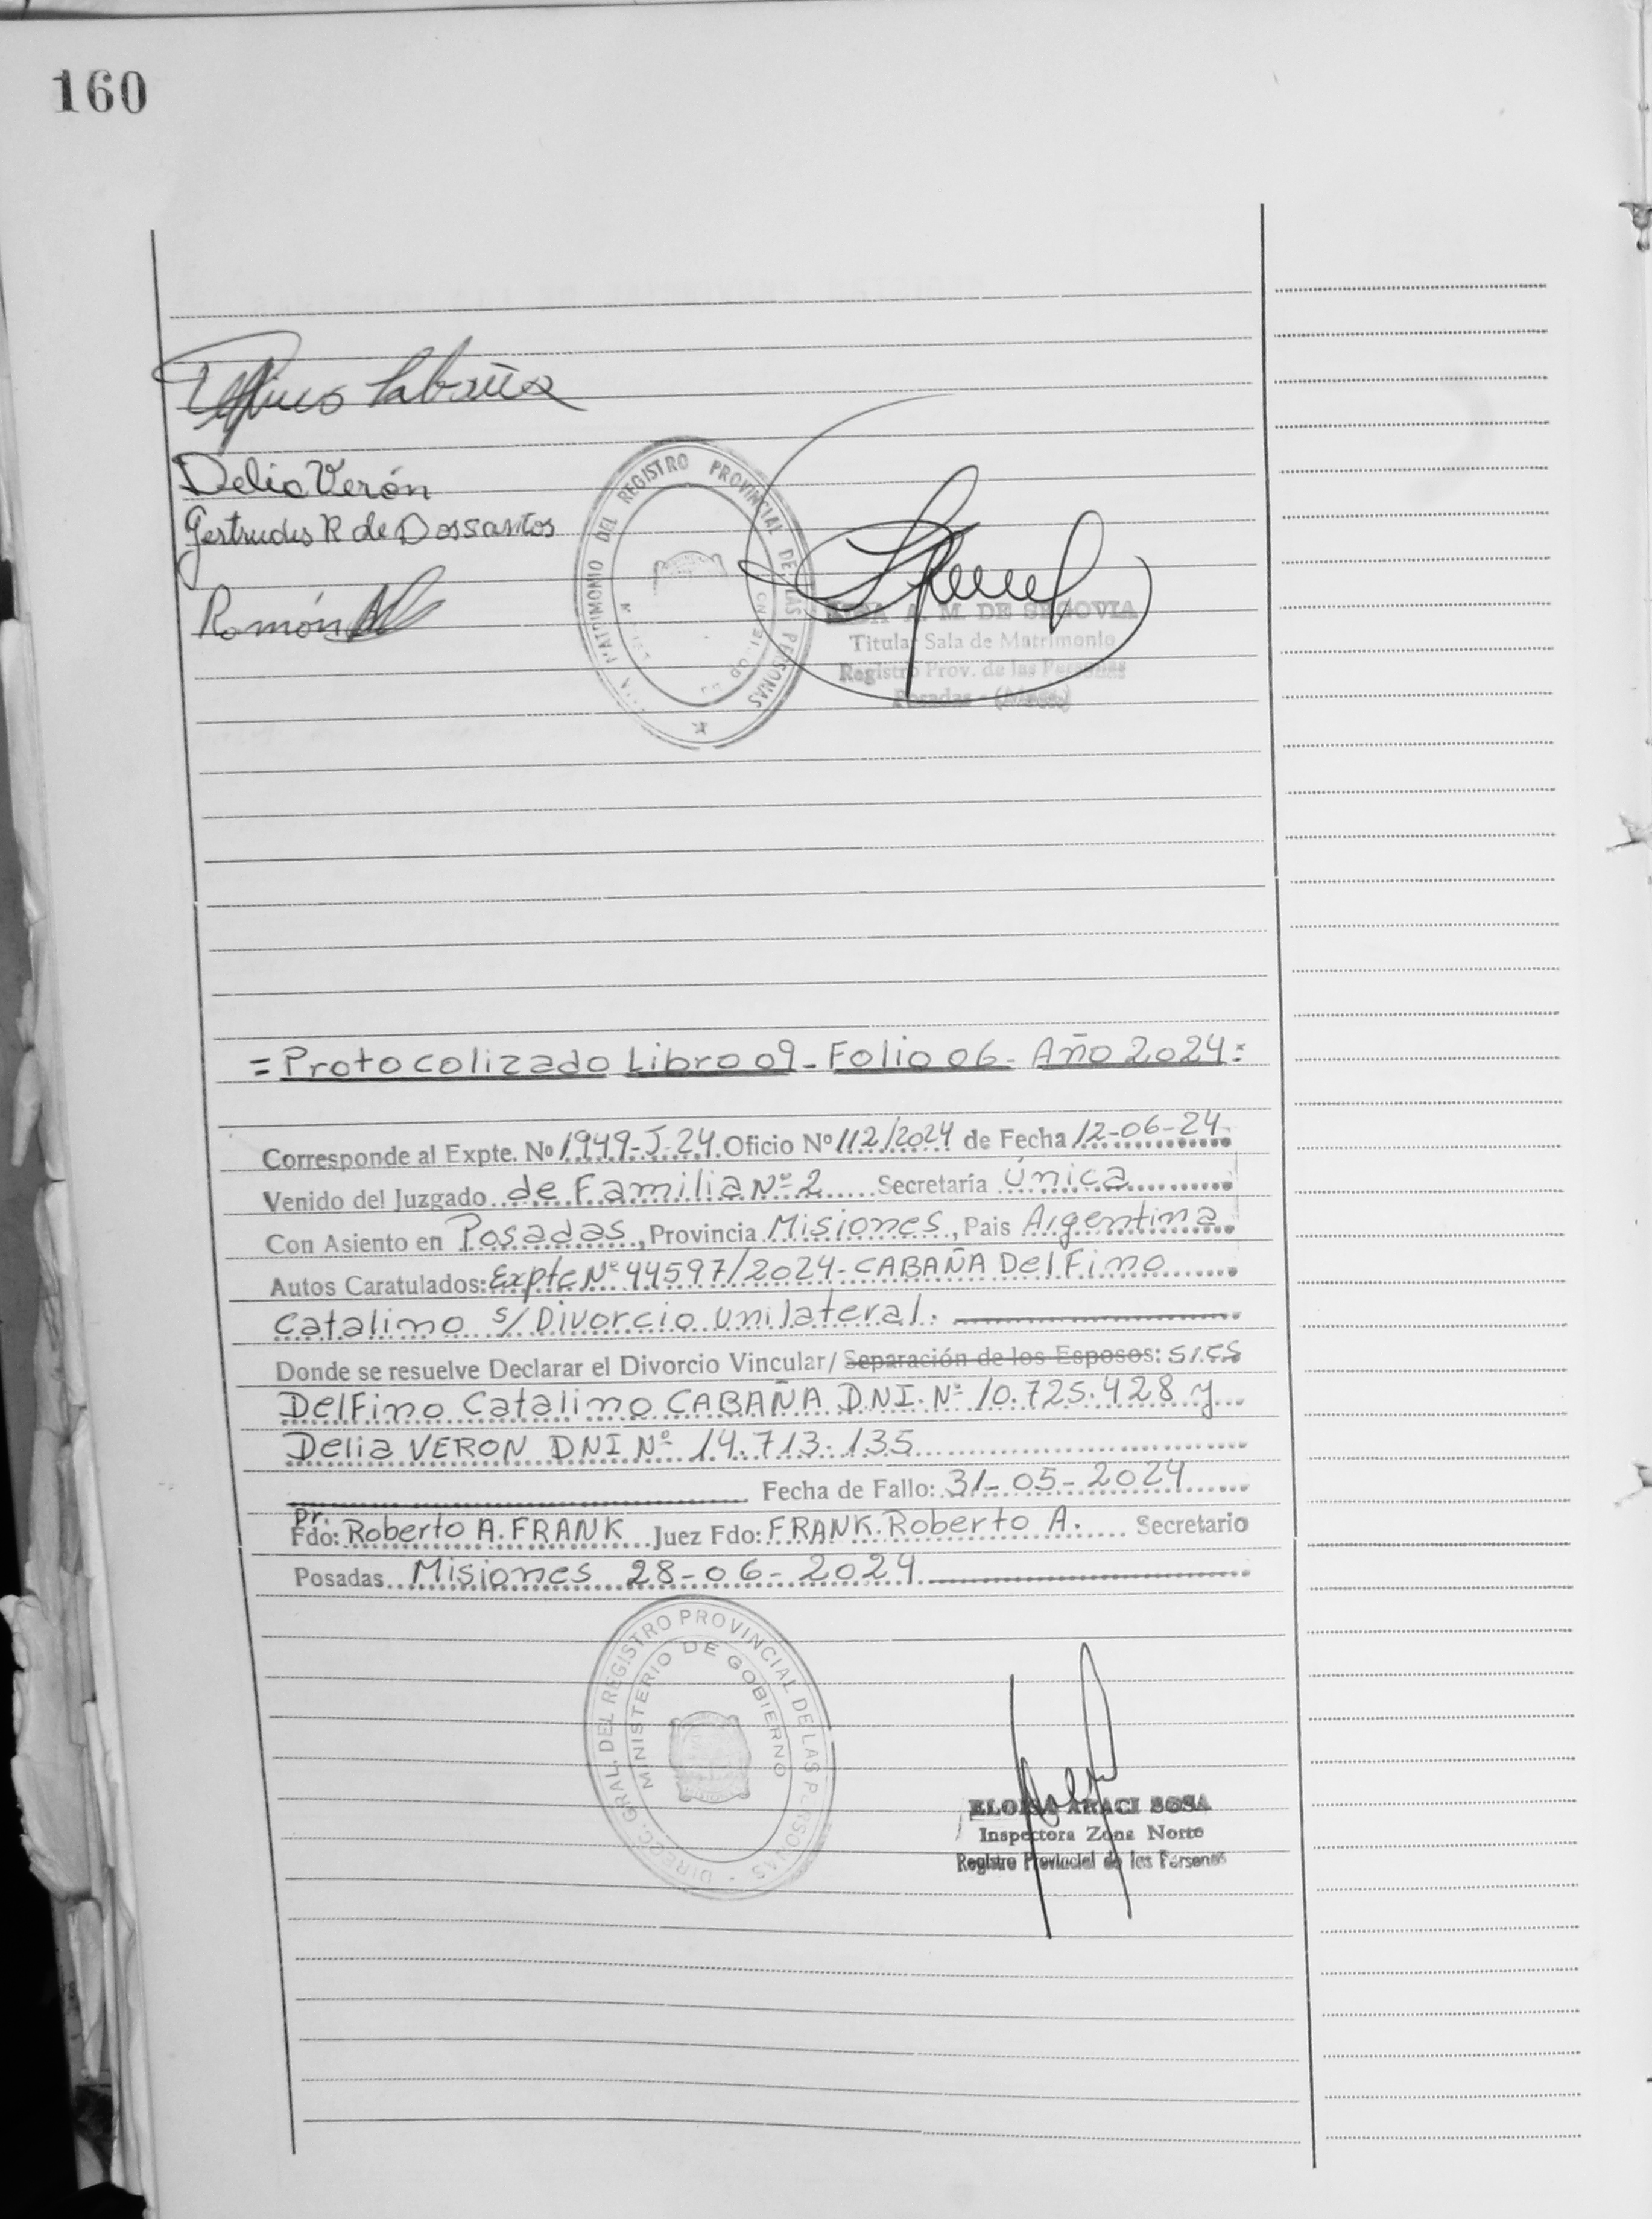 160
Delia Verón
Gertrudis R de Dossantos
Ramón
DEL REGISTRO PROVINCIAL DE LAS PERSONAS
A. M. DE SEGOVIA
Titular Sala de Matrimonio
Registro Prov. de las Personas
Posadas - (Mnes.)
= Protocolizado Libro 09 - Folio 06 - Año 2024 =
Corresponde al Expte. Nº 1949-J-24 Oficio Nº 112/2024 de Fecha 12-06-24
Venido del Juzgado de Familia Nº 2 Secretaría Única
Con Asiento en Posadas, Provincia Misiones, Pais Argentina
Autos Caratulados: Expte Nº 44597/2024 - CABAÑA DelFino
Catalino s/ Divorcio unilateral.
Donde se resuelve Declarar el Divorcio Vincular/ Separación de los Esposos:
DelFino Catalino CABAÑA DNI. Nº 10.725.428 y
Delia VERON DNI Nº 14.713.135
Fecha de Fallo: 31-05-2024
Dr.
Fdo: Roberto A. FRANK Juez Fdo: FRANK. Roberto A. Secretario
Posadas Misiones 28-06-2024
DIREC. GRAL. DEL REGISTRO PROVINCIAL DE LAS PERSONAS
MINISTERIO DE GOBIERNO
ELOISA ARACI SOSA
Inspectora Zona Norte
Registro Provincial de las Personas